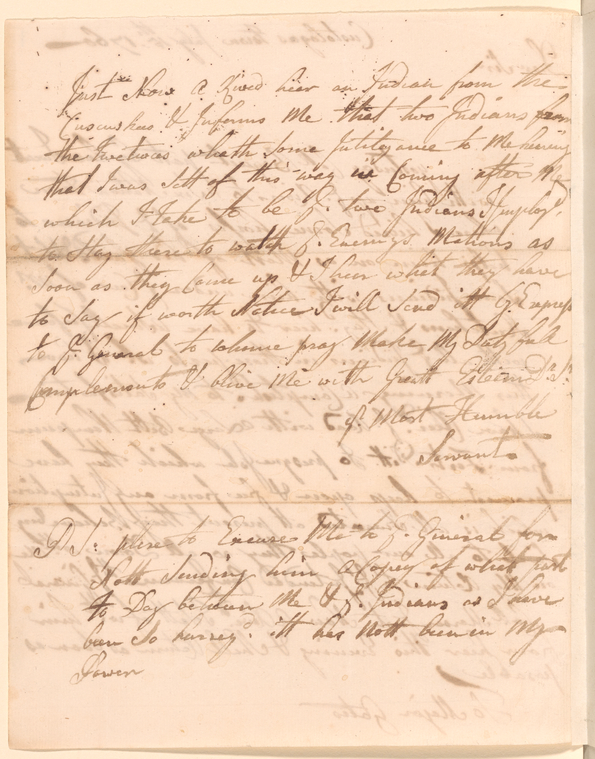 Just Now a Rived hear an Indian from the
Cuscuskes & Informs Me that two Indians from
the twetwees whith Some Inteligance to Me hearing
that I was Sett of this way is Coming after Me
which I take to be ye two Indians I Imployd
to Stay there to watch ye Enemys Motions as
Soon as they Come up & I hear what they have
to Say if worth Notice I will Send itt By Express
to ye General to whome pray Make My Dutyfull
Complements & blive Me with Great Esteem Dr Sr
yr Most Humble
Servant
P S: plese to Excuse Me to ye General for
Nott Sending him a Copey of what past
to Day between Me & ye Indians as I have
been So hurreyd itt has Nott been in My
Power